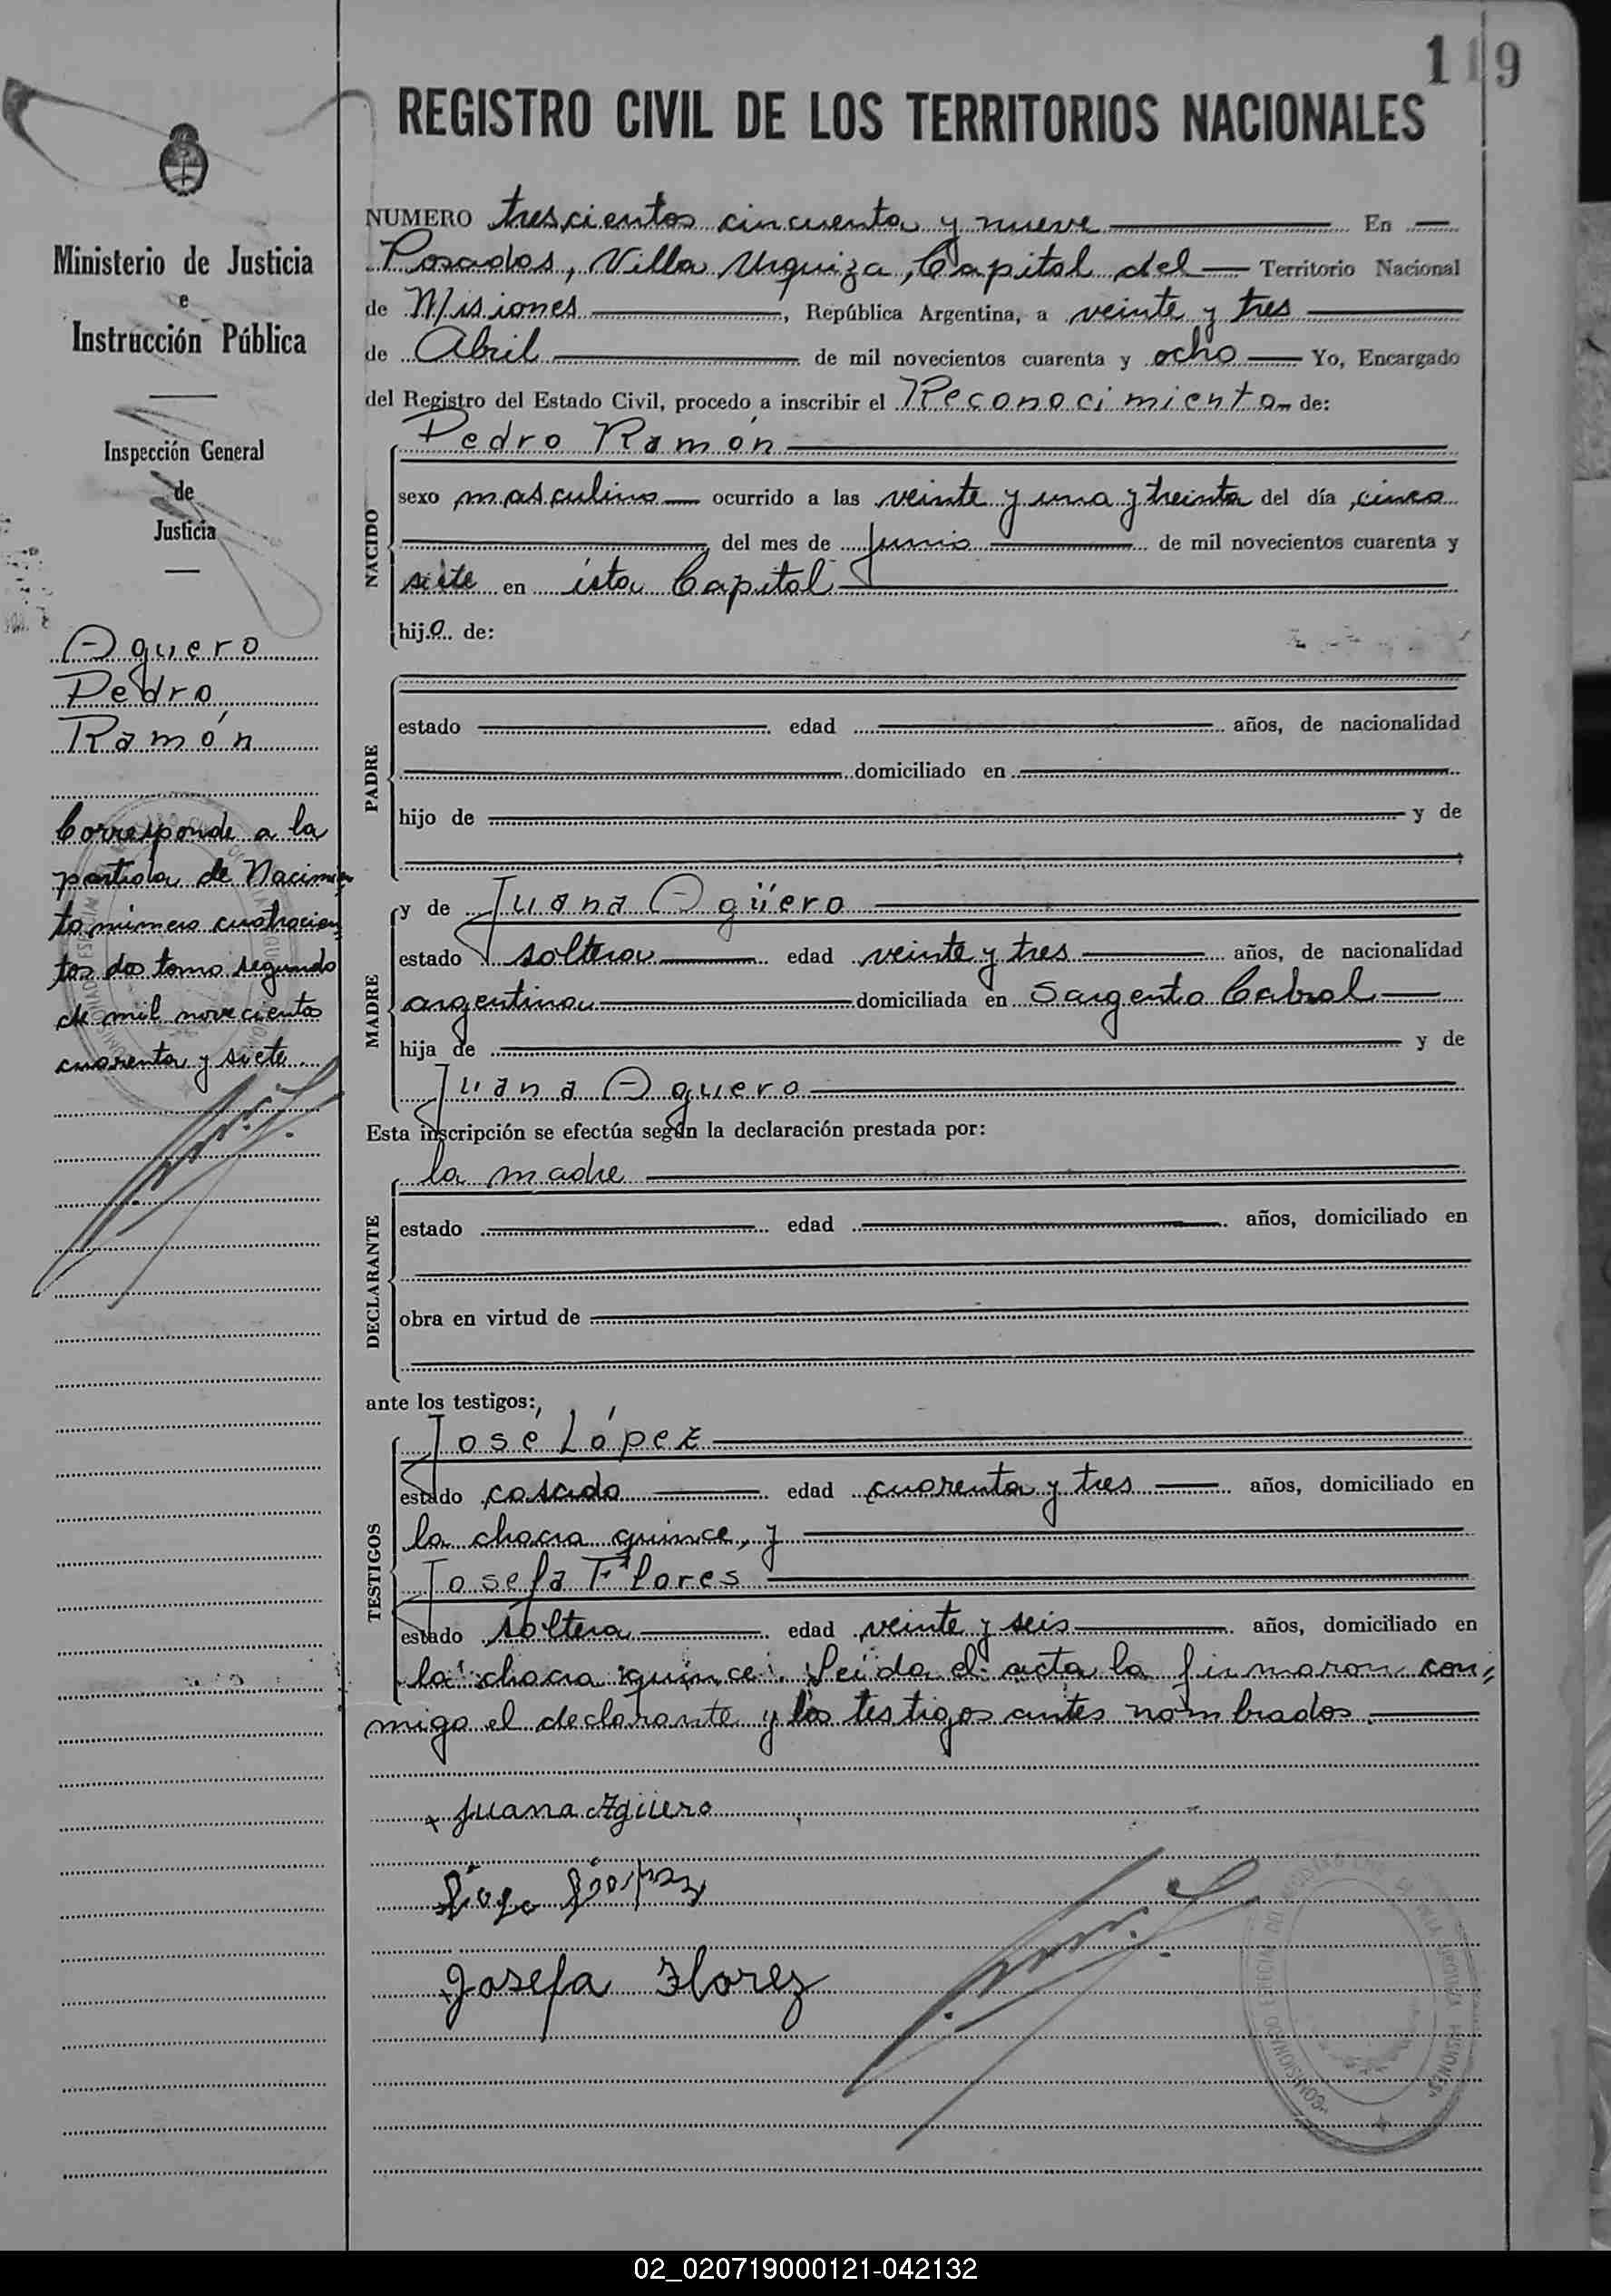 119
REGISTRO CIVIL DE LOS TERRITORIOS NACIONALES
Ministerio de Justicia
e
Instrucción Pública
Inspección General
de
Justicia
Aguero
Pedro
Ramón
Corresponde a la
partida de Nacimien
to número cuatrocien
tos dos tomo segundo
de mil novecientos
cuarenta y siete
NUMERO trescientos cincuenta y nueve En
Posadas, Villa Urquiza, Capital del Territorio Nacional
de Misiones, República Argentina, a veinte y tres
de Abril de mil novecientos cuarenta y ocho Yo, Encargado
del Registro del Estado Civil, procedo a inscribir el Reconocimiento de:
NACIDO
Pedro Ramón
sexo masculino ocurrido a las veinte y una y treinta del día cinco
del mes de Junio de mil novecientos cuarenta y
siete en ésta Capital
hijo de:
PADRE
estado edad años, de nacionalidad
domiciliado en
hijo de y de
MADRE
y de Juana Agüero
estado soltera edad veinte y tres años, de nacionalidad
argentina domiciliada en Sargento Cabral
hija de y de
Juana Aguero
Esta inscripción se efectúa según la declaración prestada por:
DECLARANTE
la madre
estado edad años, domiciliado en
obra en virtud de
ante los testigos:
TESTIGOS
José López
estado casado edad cuarenta y tres años, domiciliado en
la chacra quince, y
Josefa Flores
estado soltera edad veinte y seis años, domiciliado en
la chacra quince. Leída el acta la firmaron con=
migo el declarante y los testigos antes nombrados.
Juana Agüero
Josefa Florez
02_020719000121-042132